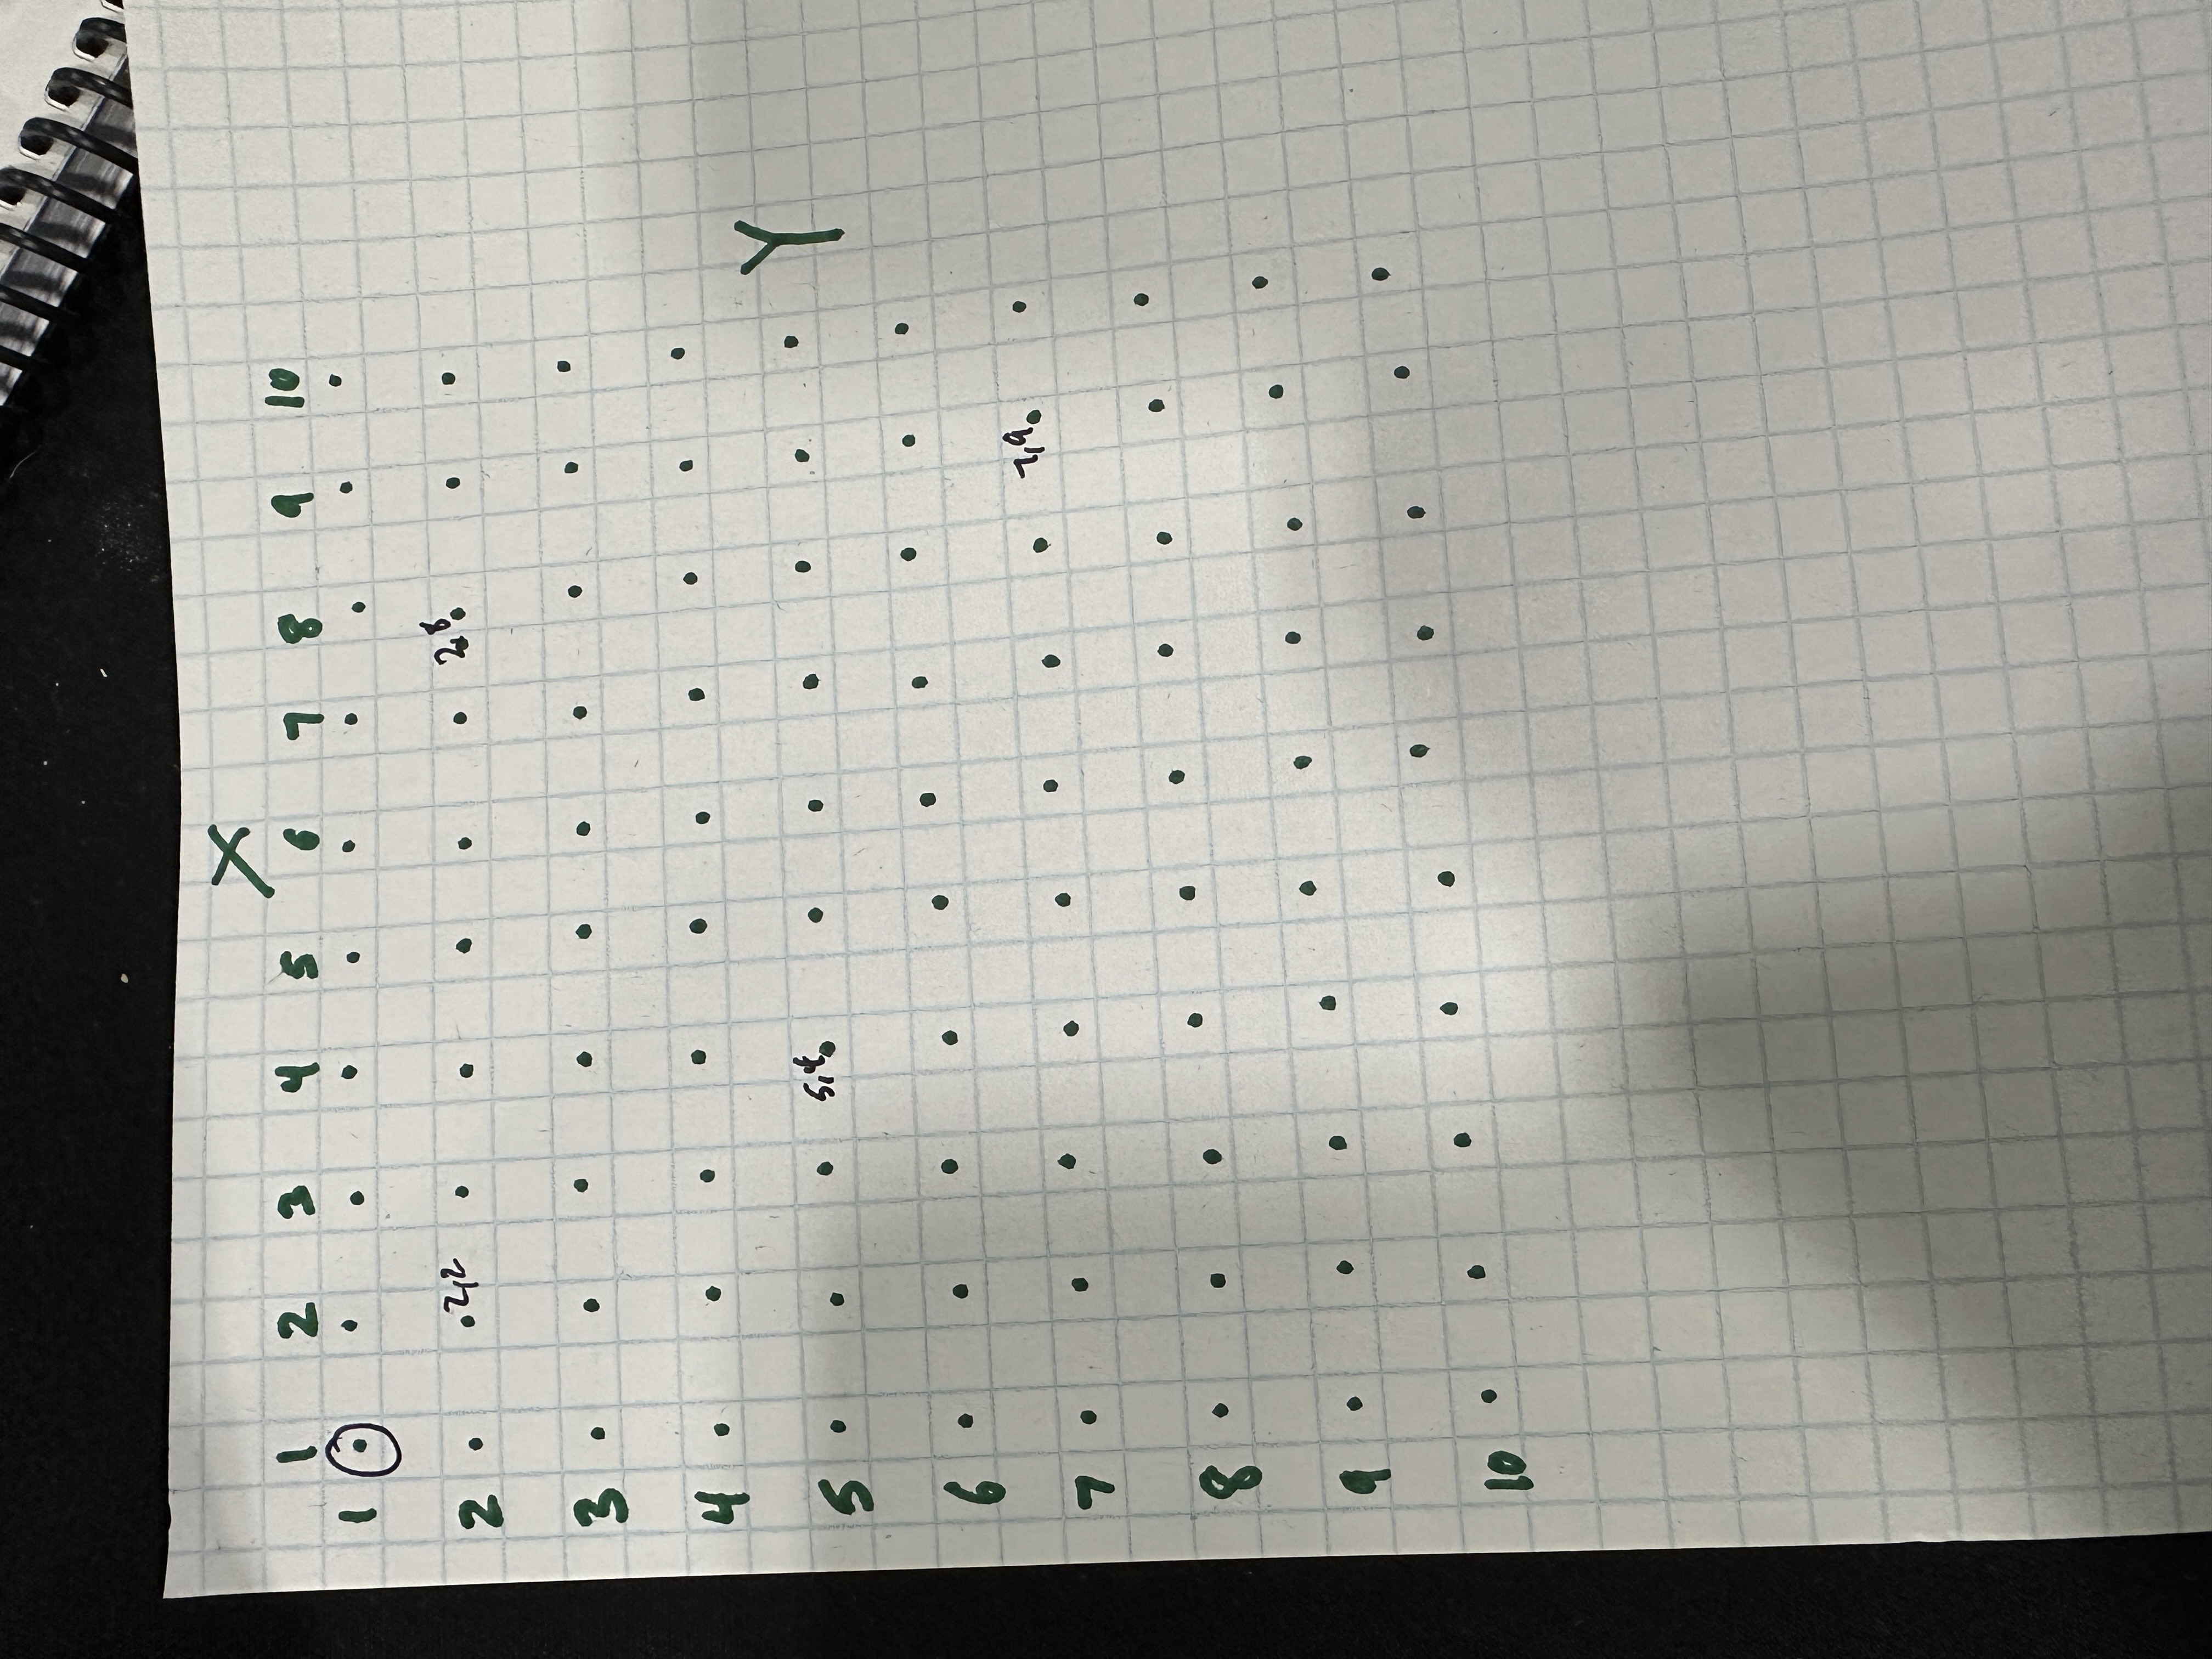 X
1 2 3 4 5 6 7 8 9 10
1
2 2,2 2,8
3
4
Y
5 5,4
6
7 7,9
8
9
10